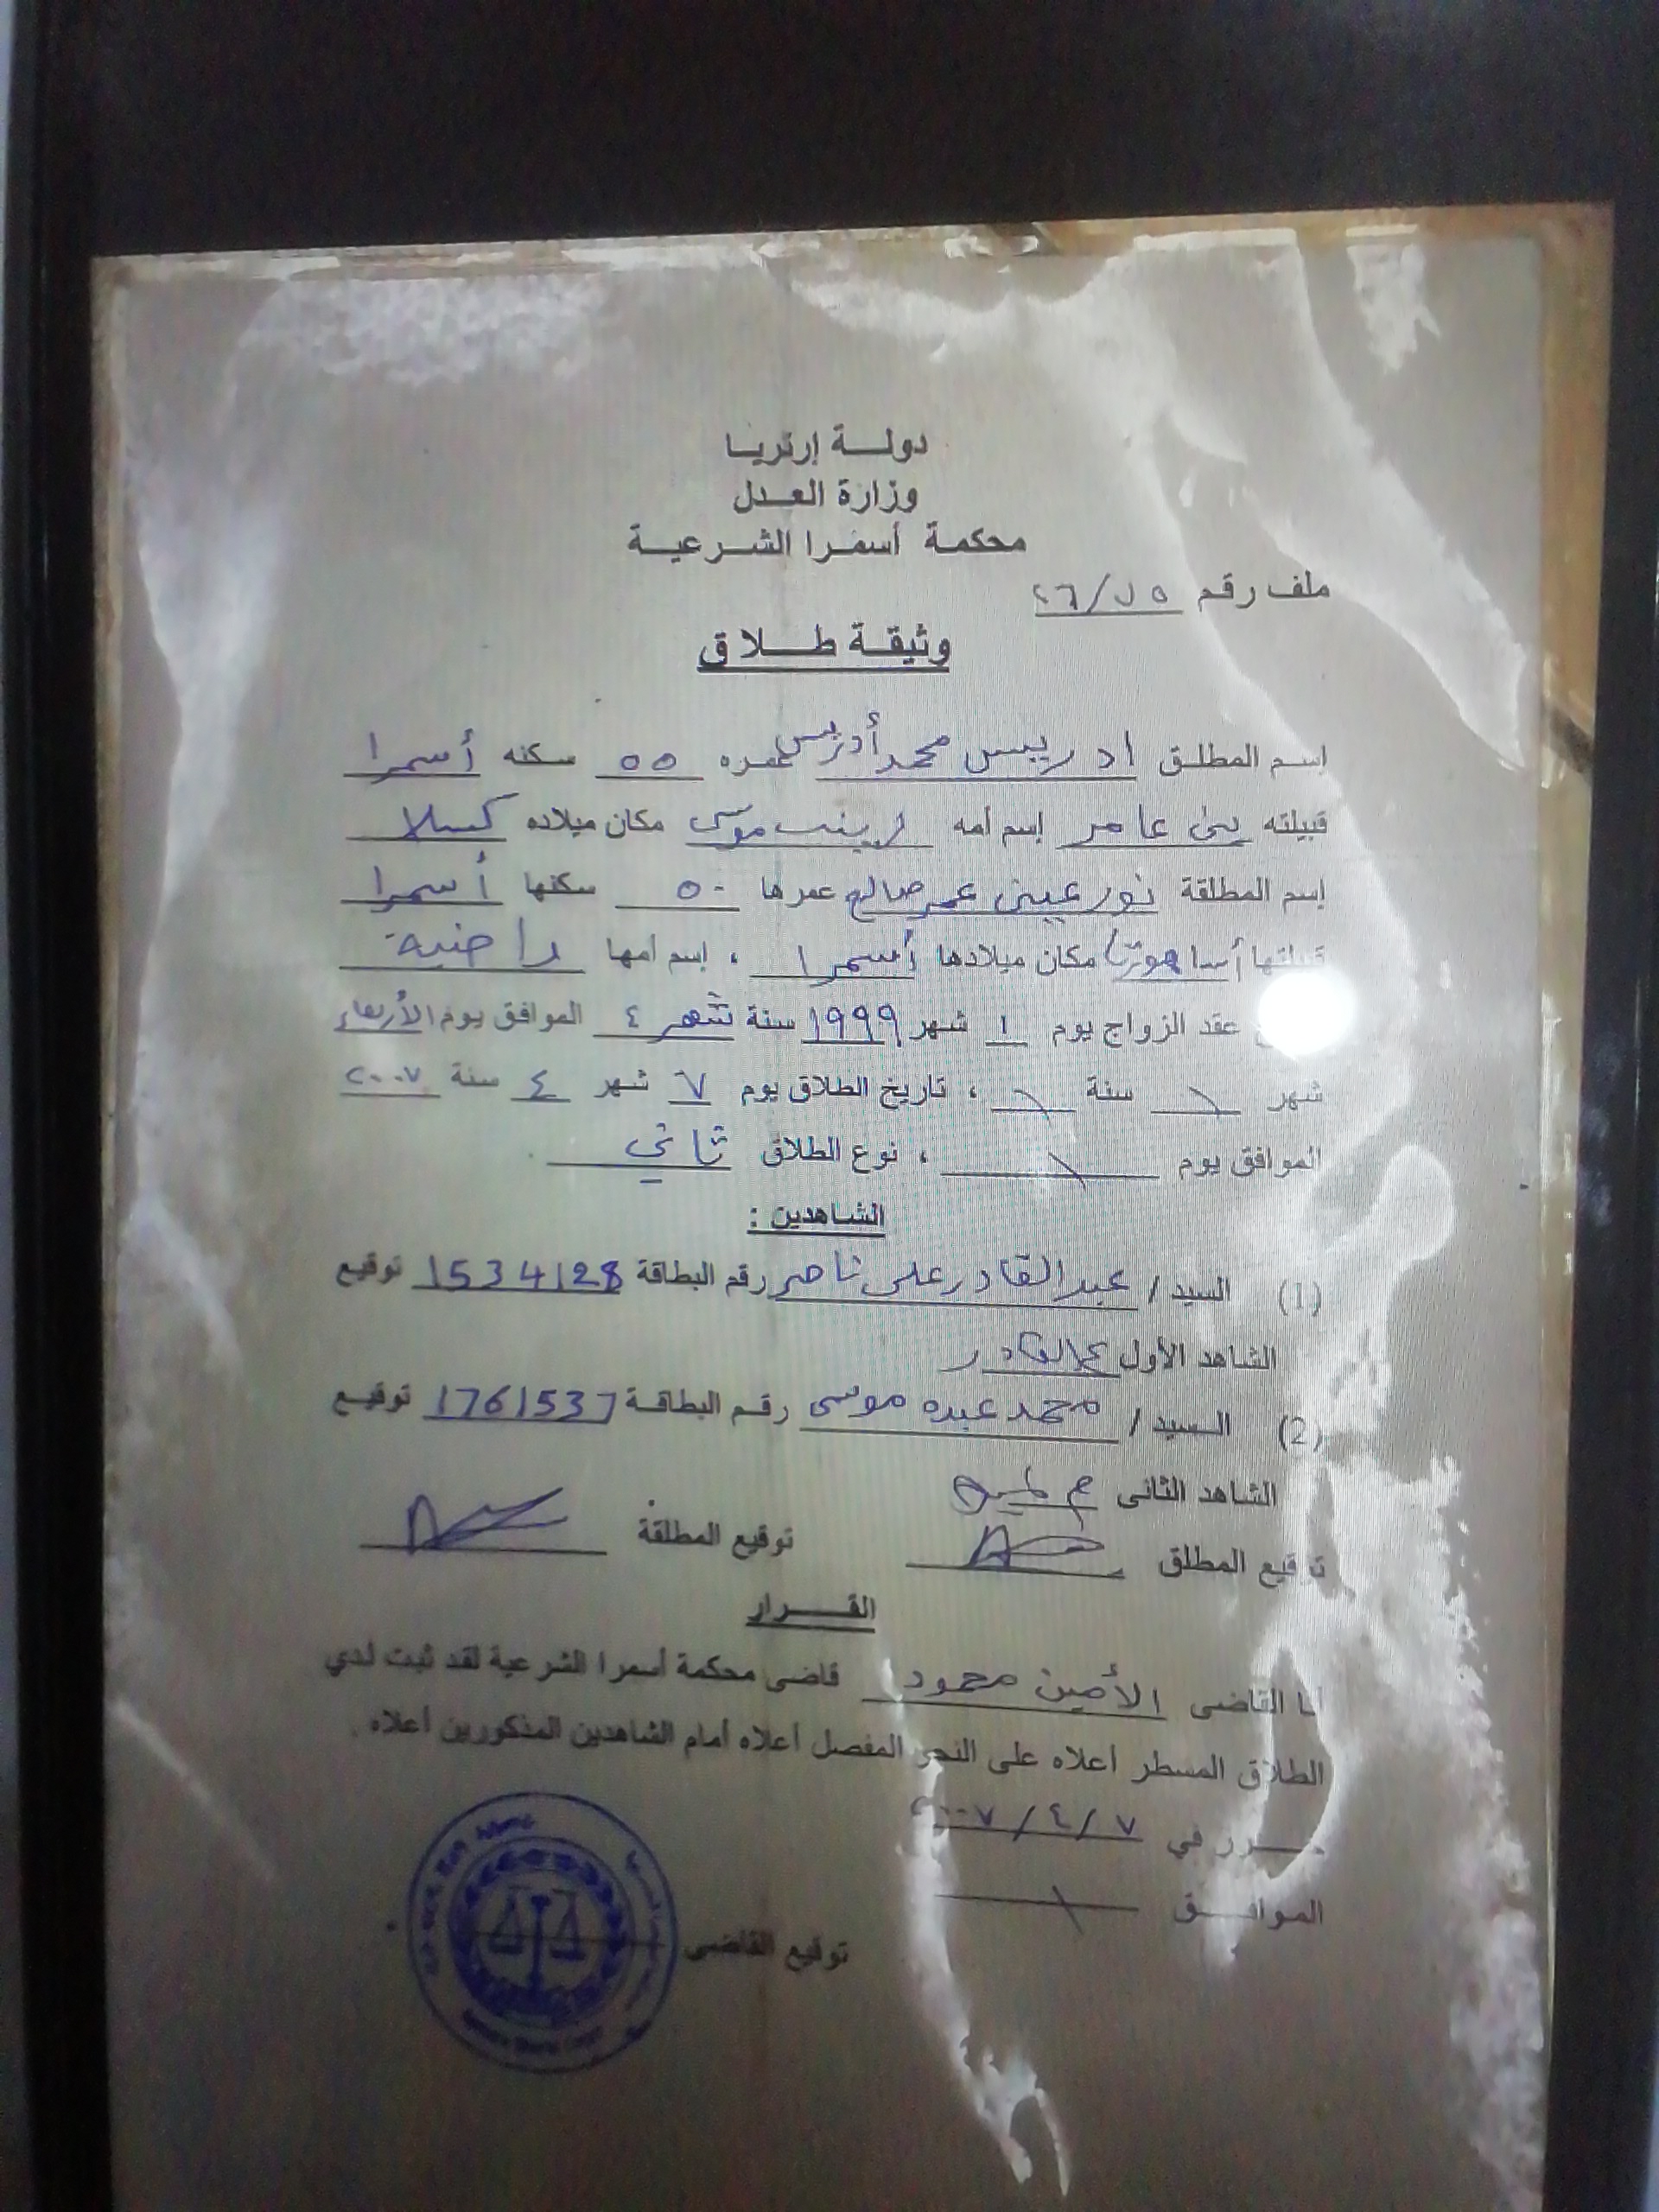 دولة إرتريا
وزارة العدل
محكمة أسمرا الشرعية
ملف رقم
وثيقة طلاق
إسم المطلق ادريس محمد أدريس عمره ٥٥ سكنه أسمرا
قبيلته بني عامر إسم أمه زينب موسى مكان ميلاده كسلا
إسم المطلقة نور عيني عمر صالح عمرها ٥٠ سكنها أسمرا
أساهورتا مكان ميلادها أسمرا ، إسم أمها راضية
عقد الزواج يوم ١ شهر 1999 سنة شهر ٤ الموافق يوم الأربعاء
شهر سنة ، تاريخ الطلاق يوم ٧ شهر ٤ سنة ٢٠٠٧
الموافق يوم ، نوع الطلاق ثاني
الشاهدين :
(1) السيد / عبدالقادر علي ناصر رقم البطاقة 1534128 توقيع
الشاهد الأول عبدالقادر
(2) السيد / محمد عبده موسى رقم البطاقة 1761537 توقيع
الشاهد الثانى
توقيع المطلق توقيع المطلقة
القرار
أنا القاضى الأمين محمود قاضى محكمة أسمرا الشرعية لقد ثبت لدي
الطلاق المسطر أعلاه على النحو المفصل أعلاه أمام الشاهدين المذكورين أعلاه .
في ٧ / ٤ / ٢٠٠٧
الموافق
توقيع القاضى